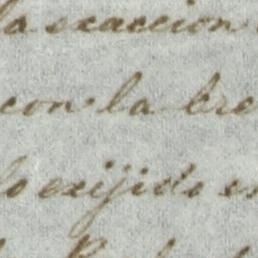 la exaccion
con la bre
lo exijido es